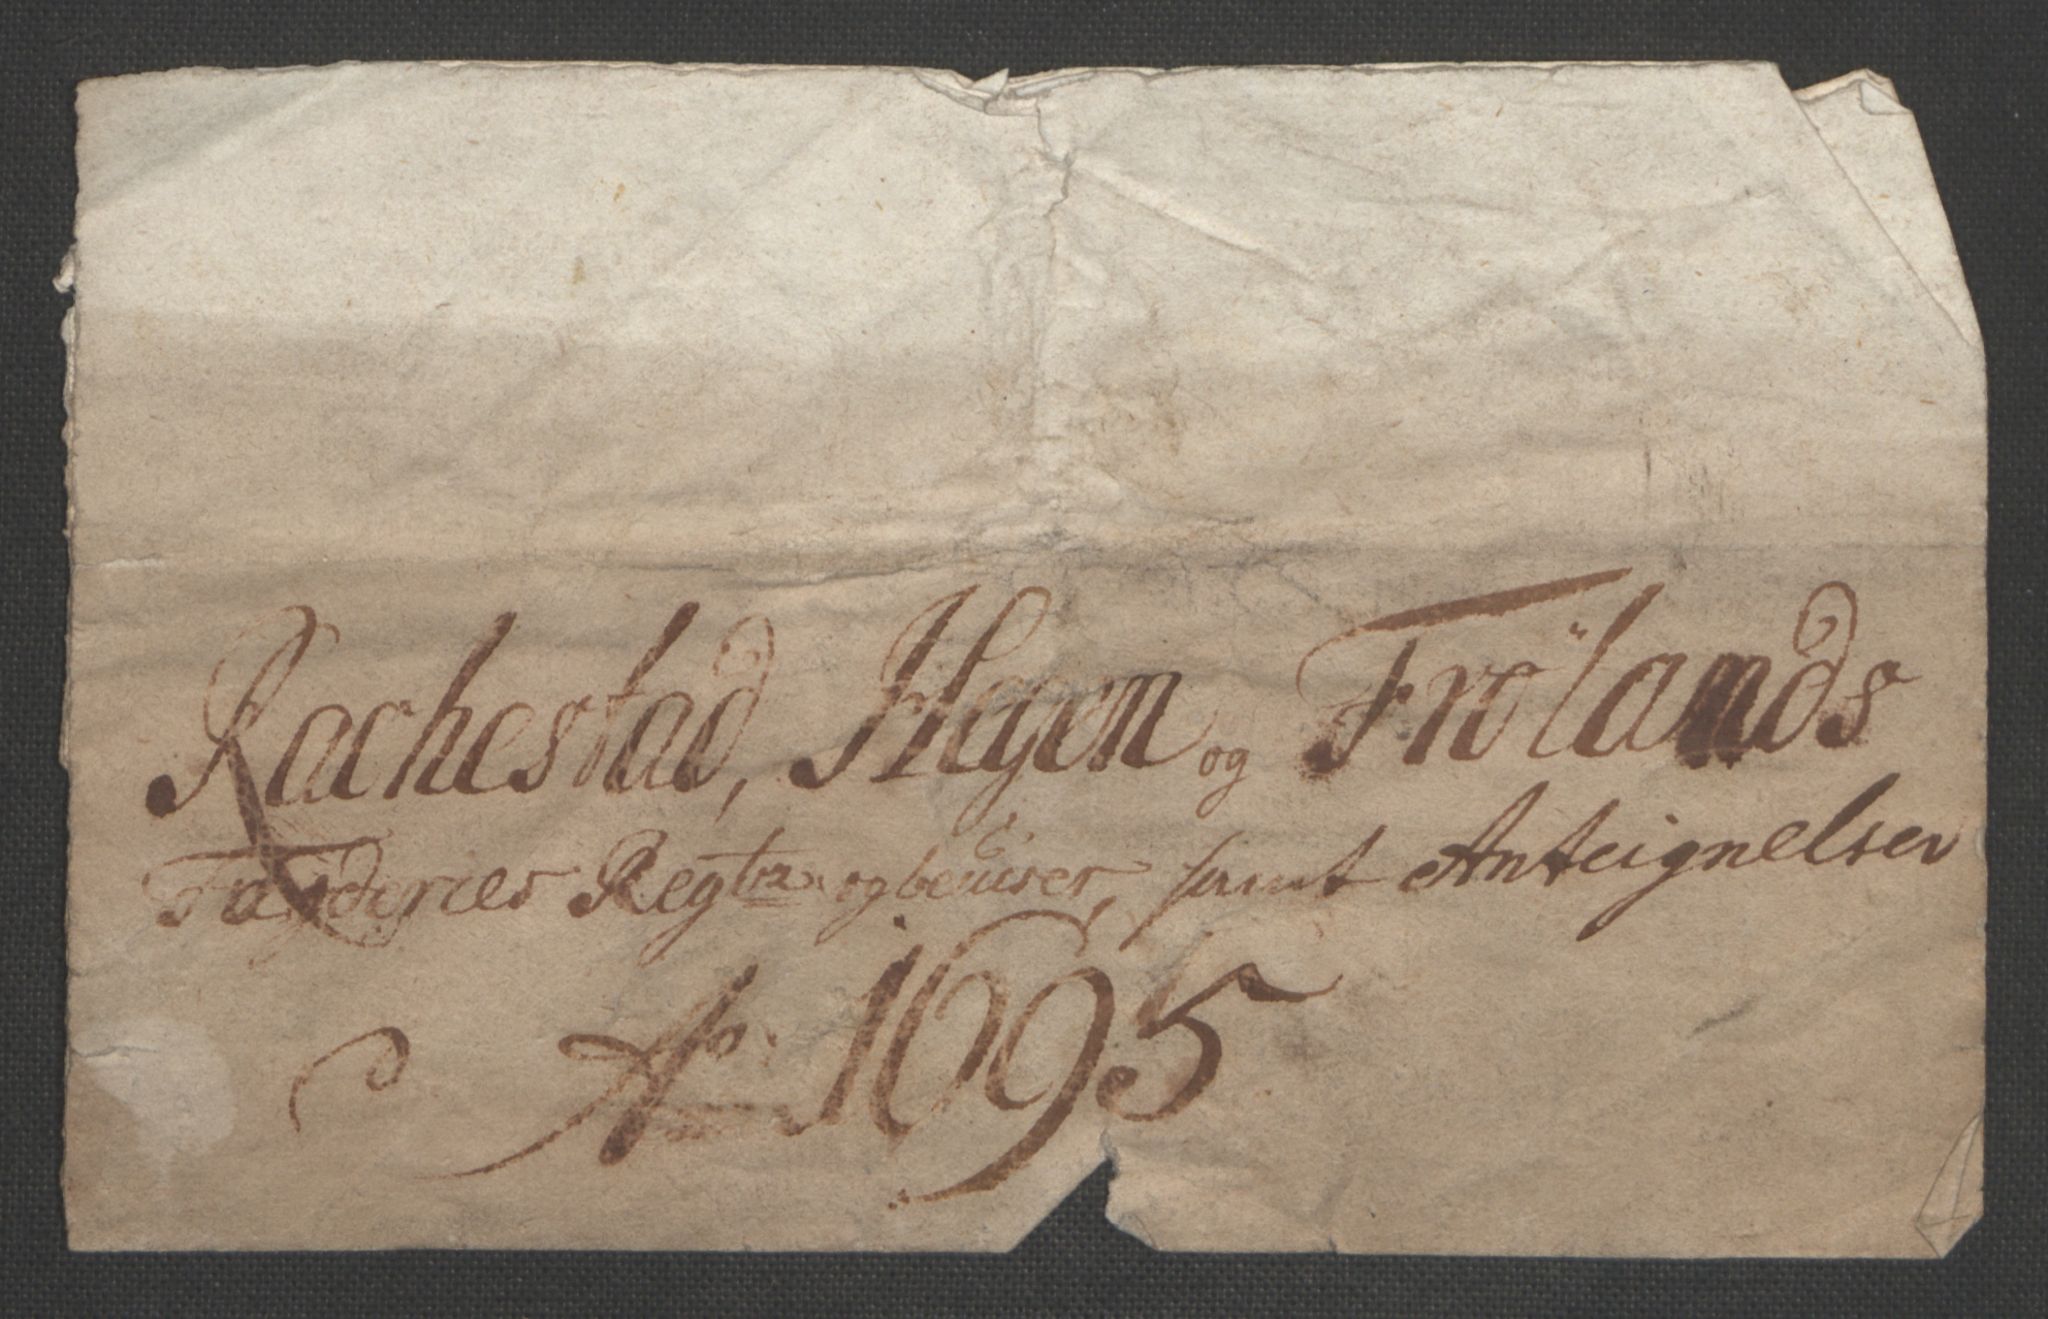 Rachestad, Hegen og Frölands
Fougderies Regtr og beviser, samt Anteignelser
Ao: 1695